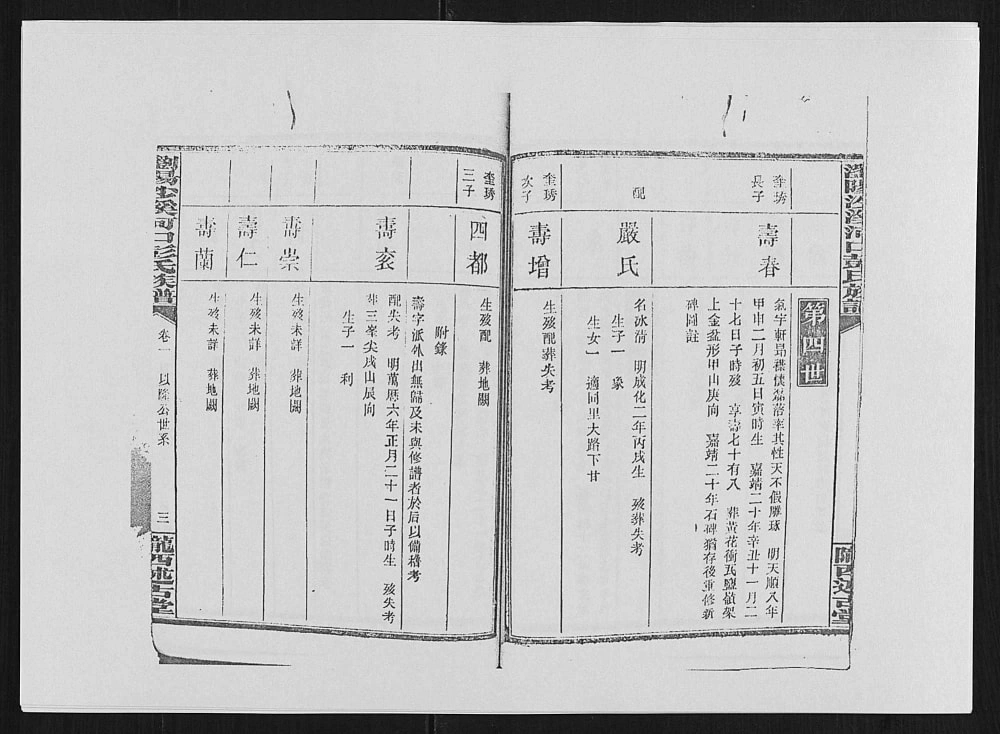 瀏陽沙溪河口彭氏族譜
隴西述古堂
第四世
奎琇
長子
壽春
氣宇軒昂襟懷磊落率其性天不假雕琢 明天順八年
甲申二月初五日寅時生 嘉靖二十年辛丑十一月二
十七日子時歿 享壽七十有八 葬黃花衝瓦鹽嶺架
上金盆形甲山庚向 嘉靖二十年石碑猶存後重修新
碑圖註
配
嚴氏
名冰清 明成化二年丙戌生 歿葬失考
生子一 豪
生女一 適同里大路下甘
奎琇
次子
壽增
生歿配葬失考
奎琇
三子
四都
生歿配 葬地闕
附錄
壽字派外出無歸及未與修譜者於后以備稽考
壽袞
配失考 明萬曆六年正月二十一日子時生 歿失考
葬三峯尖戌山辰向
生子一 利
壽崇
生歿未詳 葬地闕
壽仁
生歿未詳 葬地闕
壽蘭
生歿未詳 葬地闕
瀏陽沙溪河口彭氏族譜
卷一 以隆公世系
三
隴西述古堂